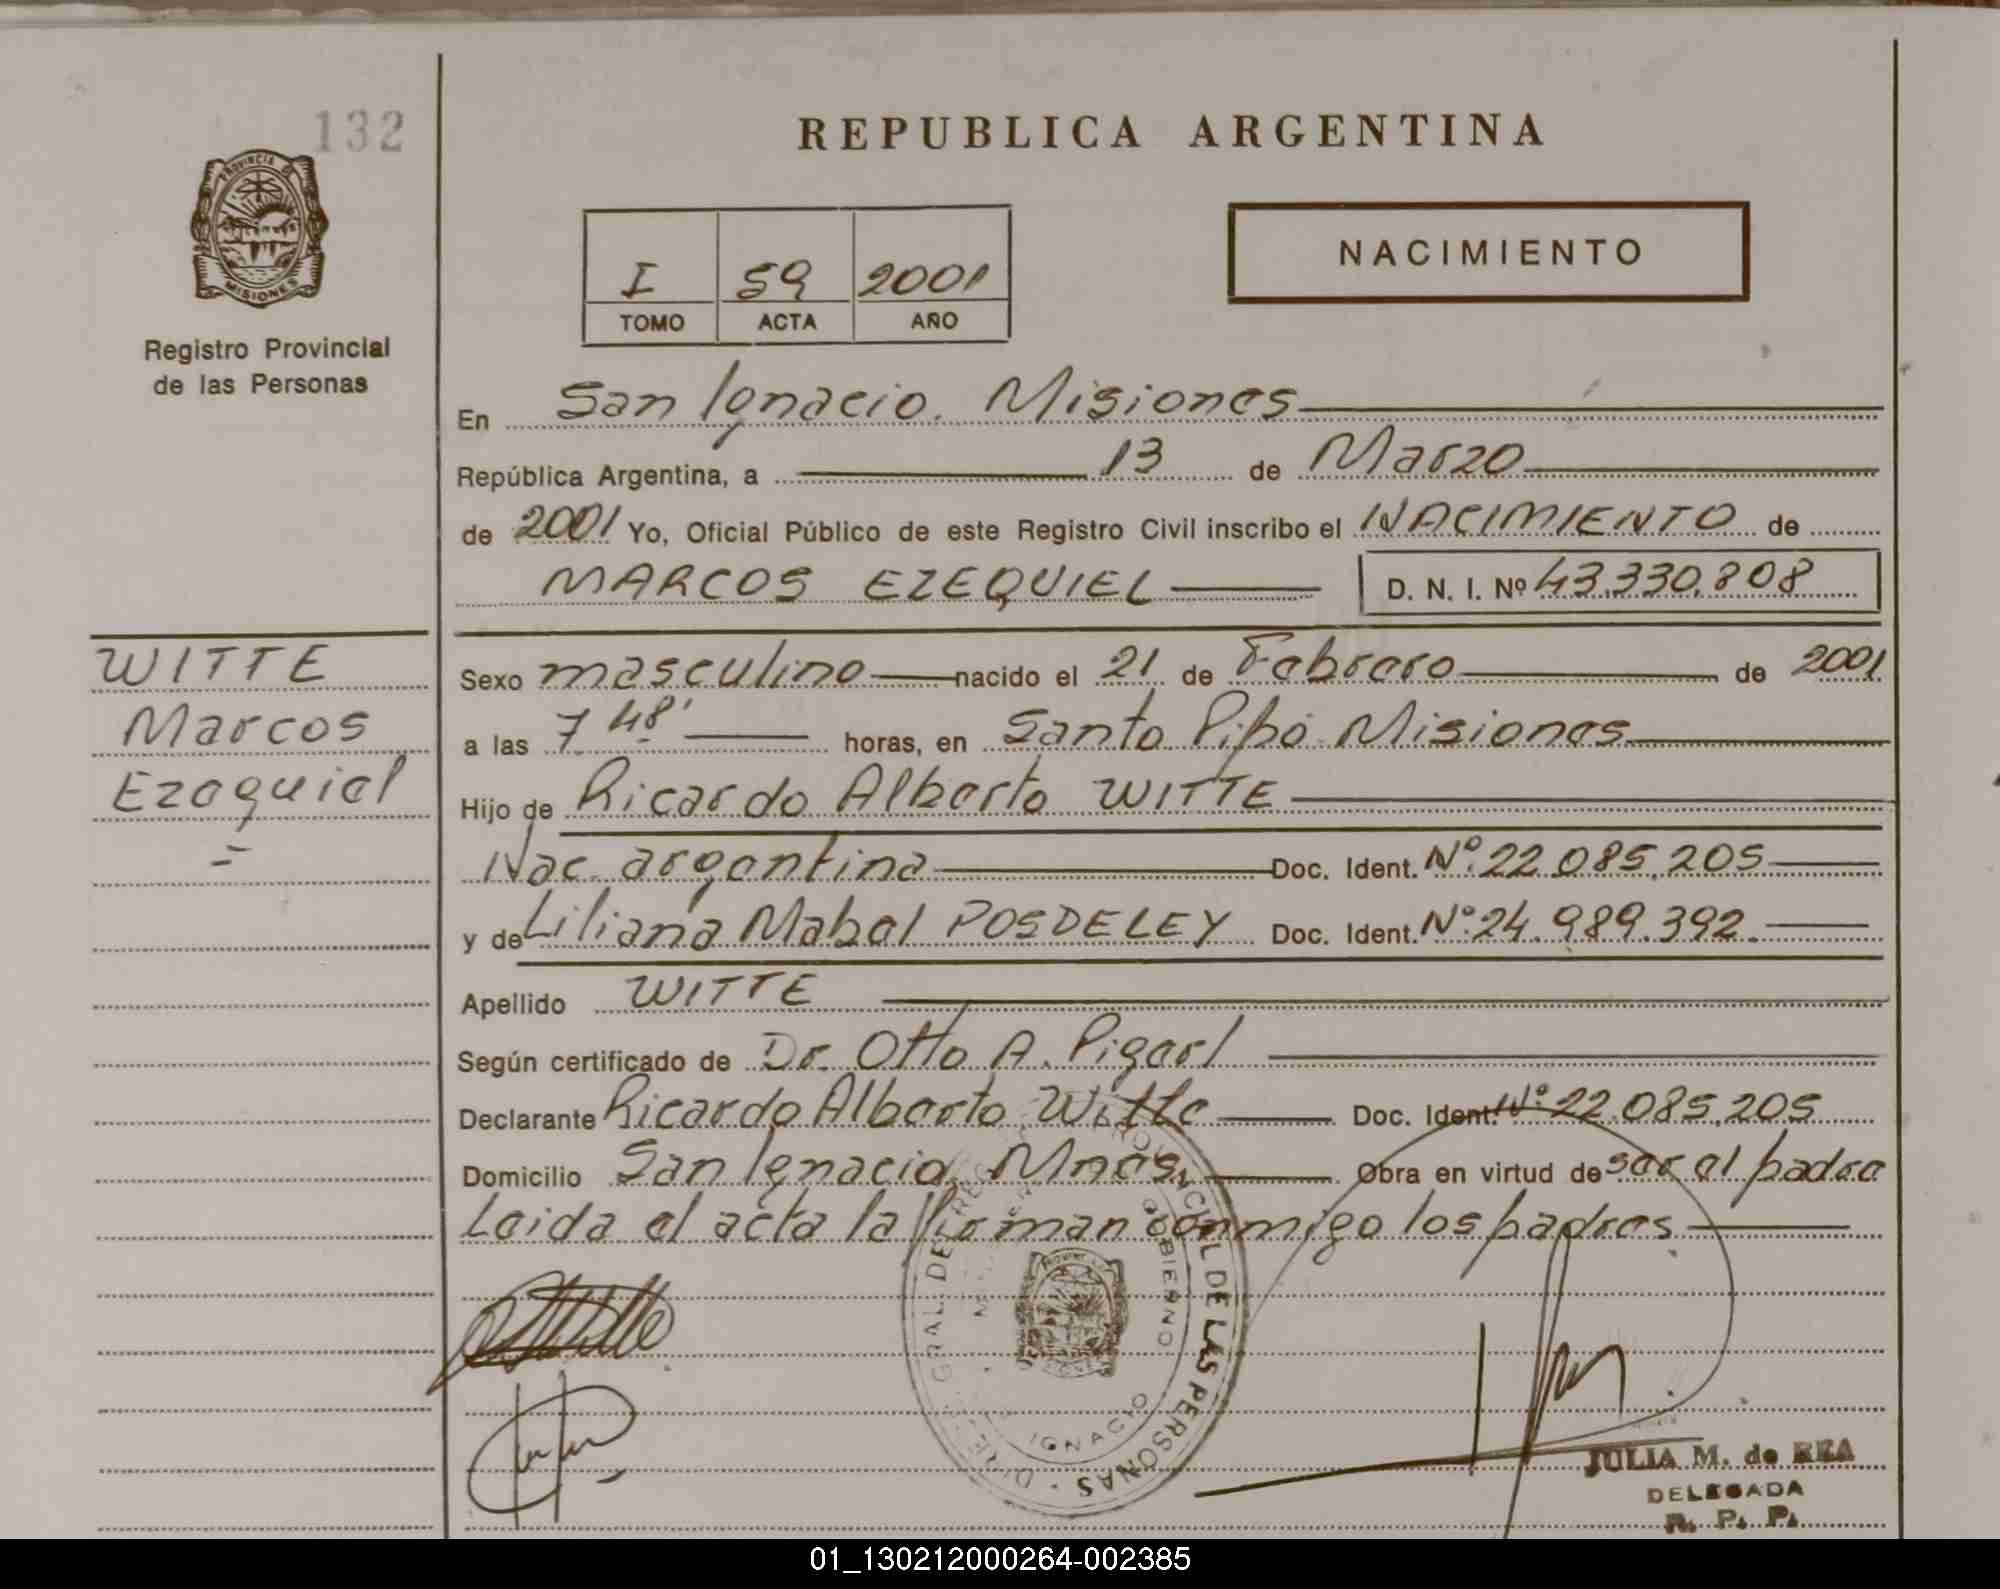 132
PROVINCIA DE
MISIONES
Registro Provincial
de las Personas
REPUBLICA ARGENTINA
I 59 2001
TOMO ACTA AÑO
NACIMIENTO
En San Ignacio. Misiones
República Argentina, a 13 de Marzo
de 2001 Yo, Oficial Público de este Registro Civil inscribo el NACIMIENTO de
MARCOS EZEQUIEL D. N. I. Nº 43.330.808
WITTE
Marcos
Ezequiel
Sexo masculino nacido el 21 de Febrero de 2001
a las 7 48' horas, en Santo Pipó Misiones
Hijo de Ricardo Alberto WITTE
Nac. argentina Doc. Ident. Nº 22.085.205
y de Liliana Mabel POSDELEY Doc. Ident. Nº 24.989.392.
Apellido WITTE
Según certificado de Dr. Otto A. Pigerl
Declarante Ricardo Alberto Witte Doc. Ident. Nº 22.085.205
Domicilio San Ignacio, Mnes. Obra en virtud de ser el padre
Leida el acta la firman conmigo los padres
PROVINCIAL DE LAS PERSONAS
GOBIERNO
IGNACIO
JULIA M. de REA
DELEGADA
R. P. P.
01_130212000264-002385